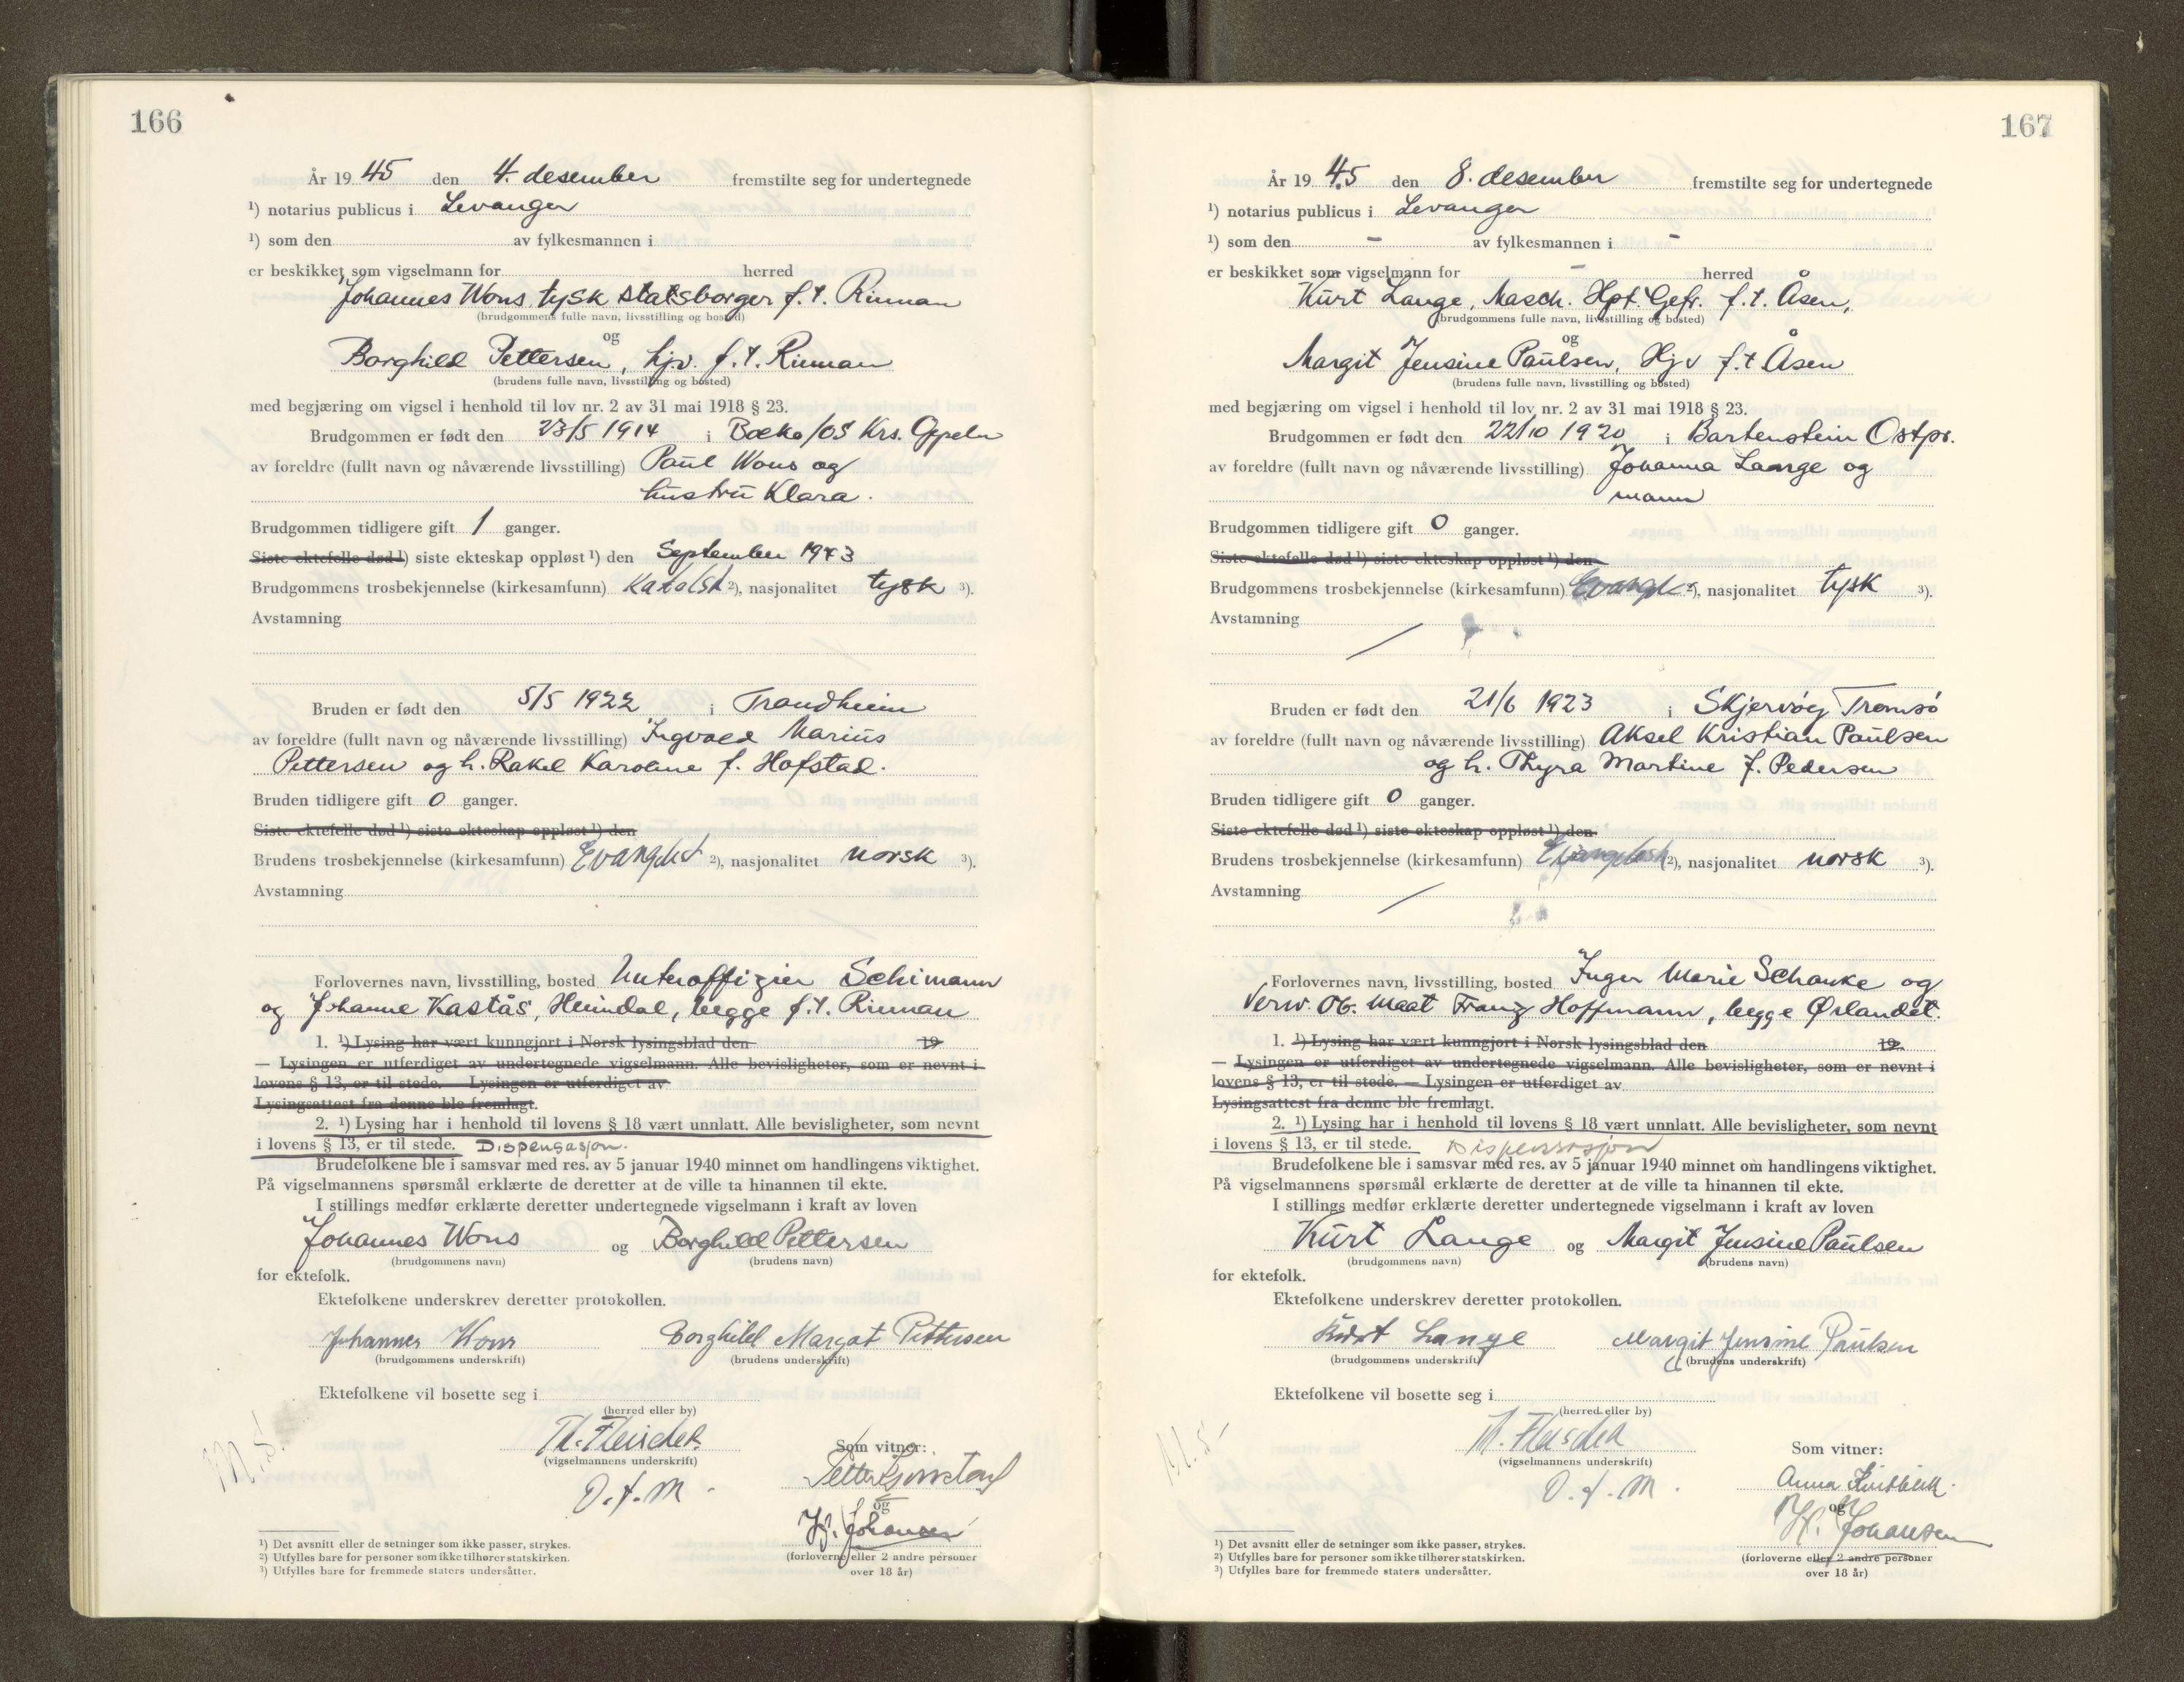 166
År 19 45 den 4. desember fremstilte seg for undertegnede
¹) notarius publicus i Levanger
¹) som den av fylkesmannen i
er beskikket som vigselmann for herred
Johannes Wons tysk statsborger f.t. Rinnan
(brudgommens fulle navn, livsstilling og bosted)
og
Borghild Pettersen, hjv. f.t. Rinnan
(brudens fulle navn, livsstilling og bosted)
med begjæring om vigsel i henhold til lov nr. 2 av 31 mai 1918 § 23.
Brudgommen er født den 23/5 1914 i Boeko/OS Krs. Oppeln
av foreldre (fullt navn og nåværende livsstilling) Paul Wons og
hustru Klara.
Brudgommen tidligere gift 1 ganger.
Siste ektefelle død ¹) siste ekteskap oppløst ¹) den September 1943
Brudgommens trosbekjennelse (kirkesamfunn) Katolsk ²), nasjonalitet tysk ³).
Avstamning
Bruden er født den 5/5 1922 i Trondheim
av foreldre (fullt navn og nåværende livsstilling) Ingvald Marius
Pettersen og h. Rakel Karoline f. Hofstad.
Bruden tidligere gift 0 ganger.
Siste ektefelle død ¹) siste ekteskap oppløst ¹) den
Brudens trosbekjennelse (kirkesamfunn) ²), nasjonalitet norsk ³).
Avstamning
Forlovernes navn, livsstilling, bosted Unteroffizier Schimann
og Johanne Kastås, Heimdal, begge f.t. Rinnan
1. ¹) Lysing har vært kunngjort i Norsk lysingsblad den 19
— Lysingen er utferdiget av undertegnede vigselmann. Alle bevisligheter, som er nevnt i
lovens § 13, er til stede. — Lysingen er utferdiget av
Lysingsattest fra denne ble fremlagt.
2. ¹) Lysing har i henhold til lovens § 18 vært unnlatt. Alle bevisligheter, som nevnt
i lovens § 13, er til stede. Dispensasjon.
Brudefolkene ble i samsvar med res. av 5 januar 1940 minnet om handlingens viktighet.
På vigselmannens spørsmål erklærte de deretter at de ville ta hinannen til ekte.
I stillings medfør erklærte deretter undertegnede vigselmann i kraft av loven
Johannes Wons og Borghild Pettersen
(brudgommens navn) (brudens navn)
for ektefolk.
Ektefolkene underskrev deretter protokollen.
Johannes Wons Borghild Margot Pettersen
(brudgommens underskrift) (brudens underskrift)
Ektefolkene vil bosette seg i
(herred eller by)
Th. Fleischer
(vigselmannens underskrift)
D.f.m.
Som vitner:
Petter
og
Hj. Johansen
(forloverne eller 2 andre personer
over 18 år)
M.S.
¹) Det avsnitt eller de setninger som ikke passer, strykes.
²) Utfylles bare for personer som ikke tilhører statskirken.
³) Utfylles bare for fremmede staters undersåtter.
167
År 19 45 den 8. desember fremstilte seg for undertegnede
¹) notarius publicus i Levanger
¹) som den - av fylkesmannen i -
er beskikket som vigselmann for - herred
Kurt Lange, Masch. Hpt. Gefr. f.t. Åsen,
(brudgommens fulle navn, livsstilling og bosted)
og
Margit Jensine Paulsen, Hjv f.t Åsen
(brudens fulle navn, livsstilling og bosted)
med begjæring om vigsel i henhold til lov nr. 2 av 31 mai 1918 § 23.
Brudgommen er født den 22/10 1920 i Bartenstein Ostpr.
av foreldre (fullt navn og nåværende livsstilling) Johanna Lange og
mann
Brudgommen tidligere gift 0 ganger.
Siste ektefelle død ¹) siste ekteskap oppløst ¹) den
Brudgommens trosbekjennelse (kirkesamfunn) ²), nasjonalitet tysk ³).
Avstamning
Bruden er født den 21/6 1923 i Skjervöy Tromsö
av foreldre (fullt navn og nåværende livsstilling) Aksel Kristian Paulsen
og h. Thyra Martine f. Pedersen
Bruden tidligere gift 0 ganger.
Siste ektefelle død ¹) siste ekteskap oppløst ¹) den
Brudens trosbekjennelse (kirkesamfunn) ²), nasjonalitet norsk ³).
Avstamning
Forlovernes navn, livsstilling, bosted Inger Marie Schanke og
Verw. Ob. Maat Franz Hoffmann, begge Ørlandet.
1. ¹) Lysing har vært kunngjort i Norsk lysingsblad den 19
— Lysingen er utferdiget av undertegnede vigselmann. Alle bevisligheter, som er nevnt i
lovens § 13, er til stede. — Lysingen er utferdiget av
Lysingsattest fra denne ble fremlagt.
2. ¹) Lysing har i henhold til lovens § 18 vært unnlatt. Alle bevisligheter, som nevnt
i lovens § 13, er til stede. Dispensasjon
Brudefolkene ble i samsvar med res. av 5 januar 1940 minnet om handlingens viktighet.
På vigselmannens spørsmål erklærte de deretter at de ville ta hinannen til ekte.
I stillings medfør erklærte deretter undertegnede vigselmann i kraft av loven
Kurt Lange og Margit Jensine Paulsen
(brudgommens navn) (brudens navn)
for ektefolk.
Ektefolkene underskrev deretter protokollen.
Kurt Lange Margit Jensine Paulsen
(brudgommens underskrift) (brudens underskrift)
Ektefolkene vil bosette seg i
(herred eller by)
Th. Fleischer
(vigselmannens underskrift)
D.f.m.
Som vitner:
Anna
og
Hj. Johansen
(forloverne eller 2 andre personer
over 18 år)
M.S.
¹) Det avsnitt eller de setninger som ikke passer, strykes.
²) Utfylles bare for personer som ikke tilhører statskirken.
³) Utfylles bare for fremmede staters undersåtter.